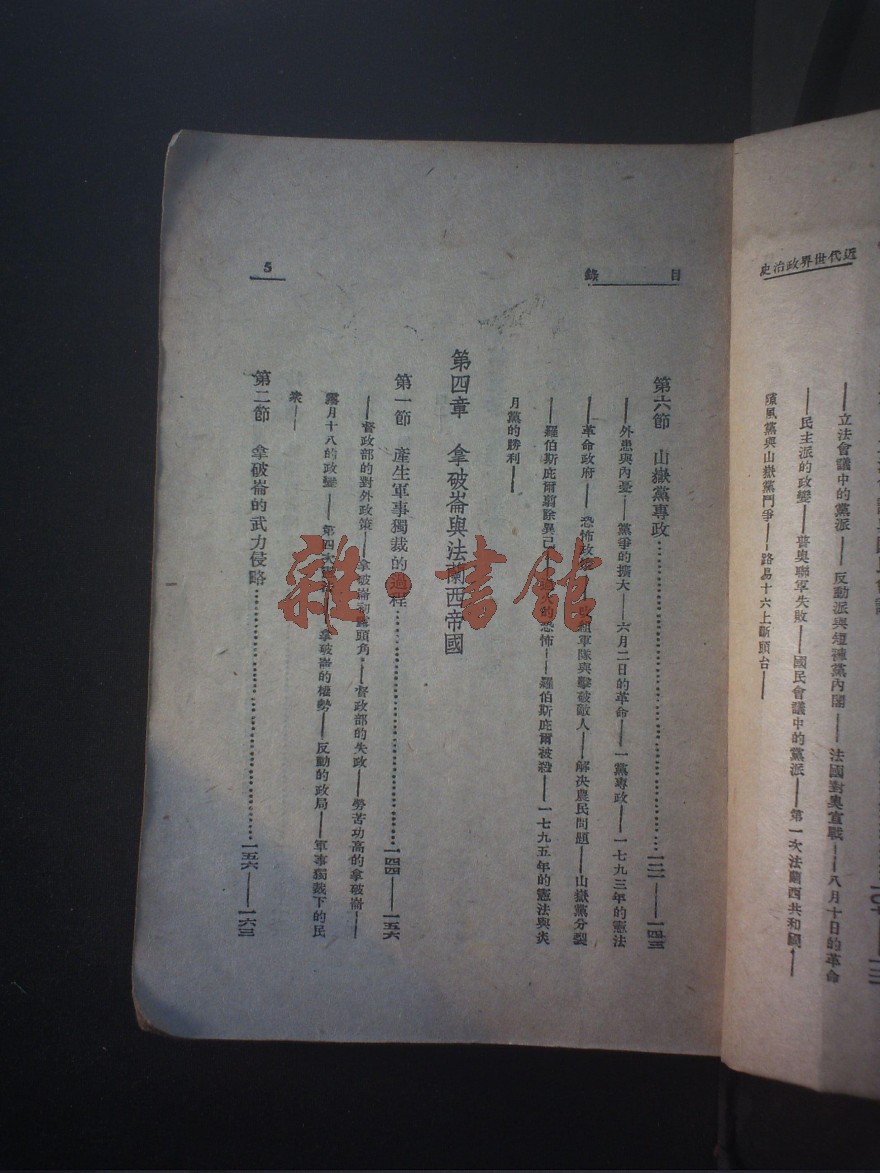 近代世界政治史
——立法會議中的黨派——反動派與短褲黨內閣——法國對奧宣戰——八月十日的革命
——民主派的政變——普奧聯軍失敗——國民會議中的黨派——第一次法蘭西共和國——
黨與山嶽黨鬥爭——路易十六上斷頭台——
目錄
5
第六節 山嶽黨專政…………一二二——一四三
——外患與內憂——黨爭的擴大——六月二日的革命——一黨專政——一七九三年的憲法
——革命政府——恐怖政策——組軍隊與擊破敵人——解決農民問題——山嶽黨分裂
——羅伯斯庇爾翦除異己——的恐怖——羅伯斯庇爾被殺——一七九五年的憲法與炎
月黨的勝利——
第四章 拿破崙與法蘭西帝國
第一節 產生軍事獨裁的過程…………一四四——一五六
——督政部的對外政策——拿破崙初露頭角——督政部的失政——勞苦功高的拿破崙——
霧月十八的政變——第四次憲法——拿破崙的權勢——反動的政局——軍事獨裁下的民
衆——
第二節 拿破崙的武力侵略…………一五六——一六三
雜·書館